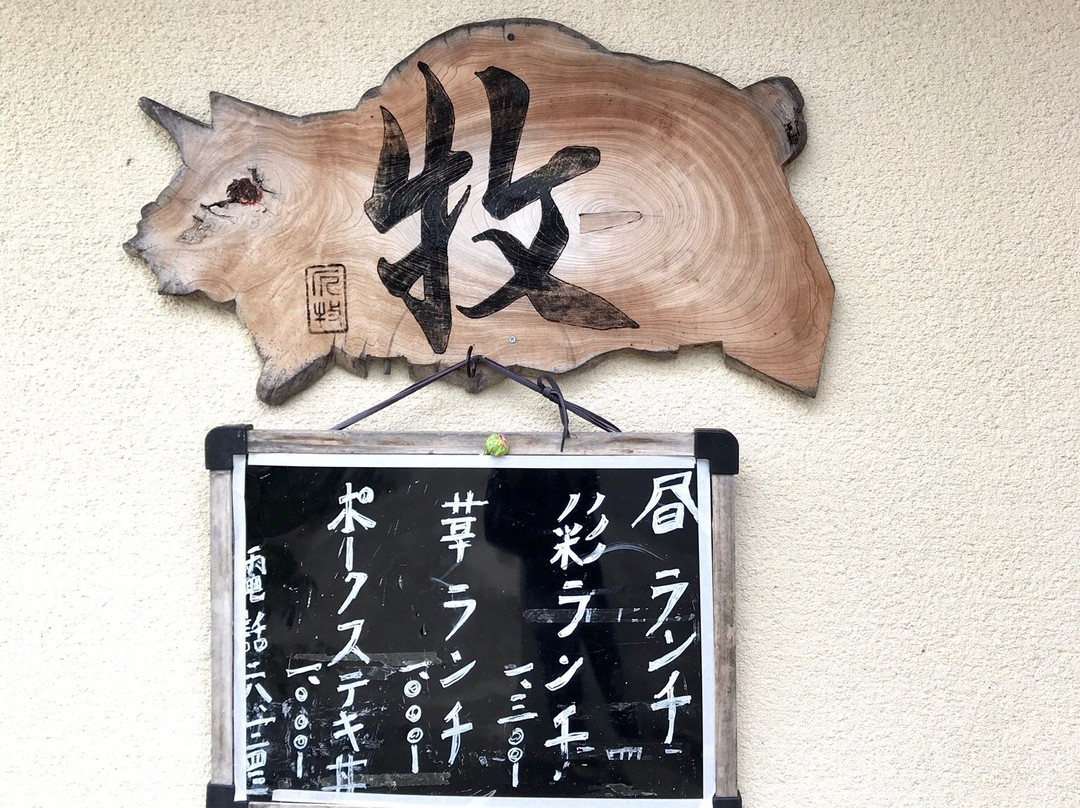 牧
昼ランチ
彩ランチ
一、三〇〇ー
華ランチ
一、〇〇〇ー
ポークステキ丼
一、〇〇〇ー
電話二八